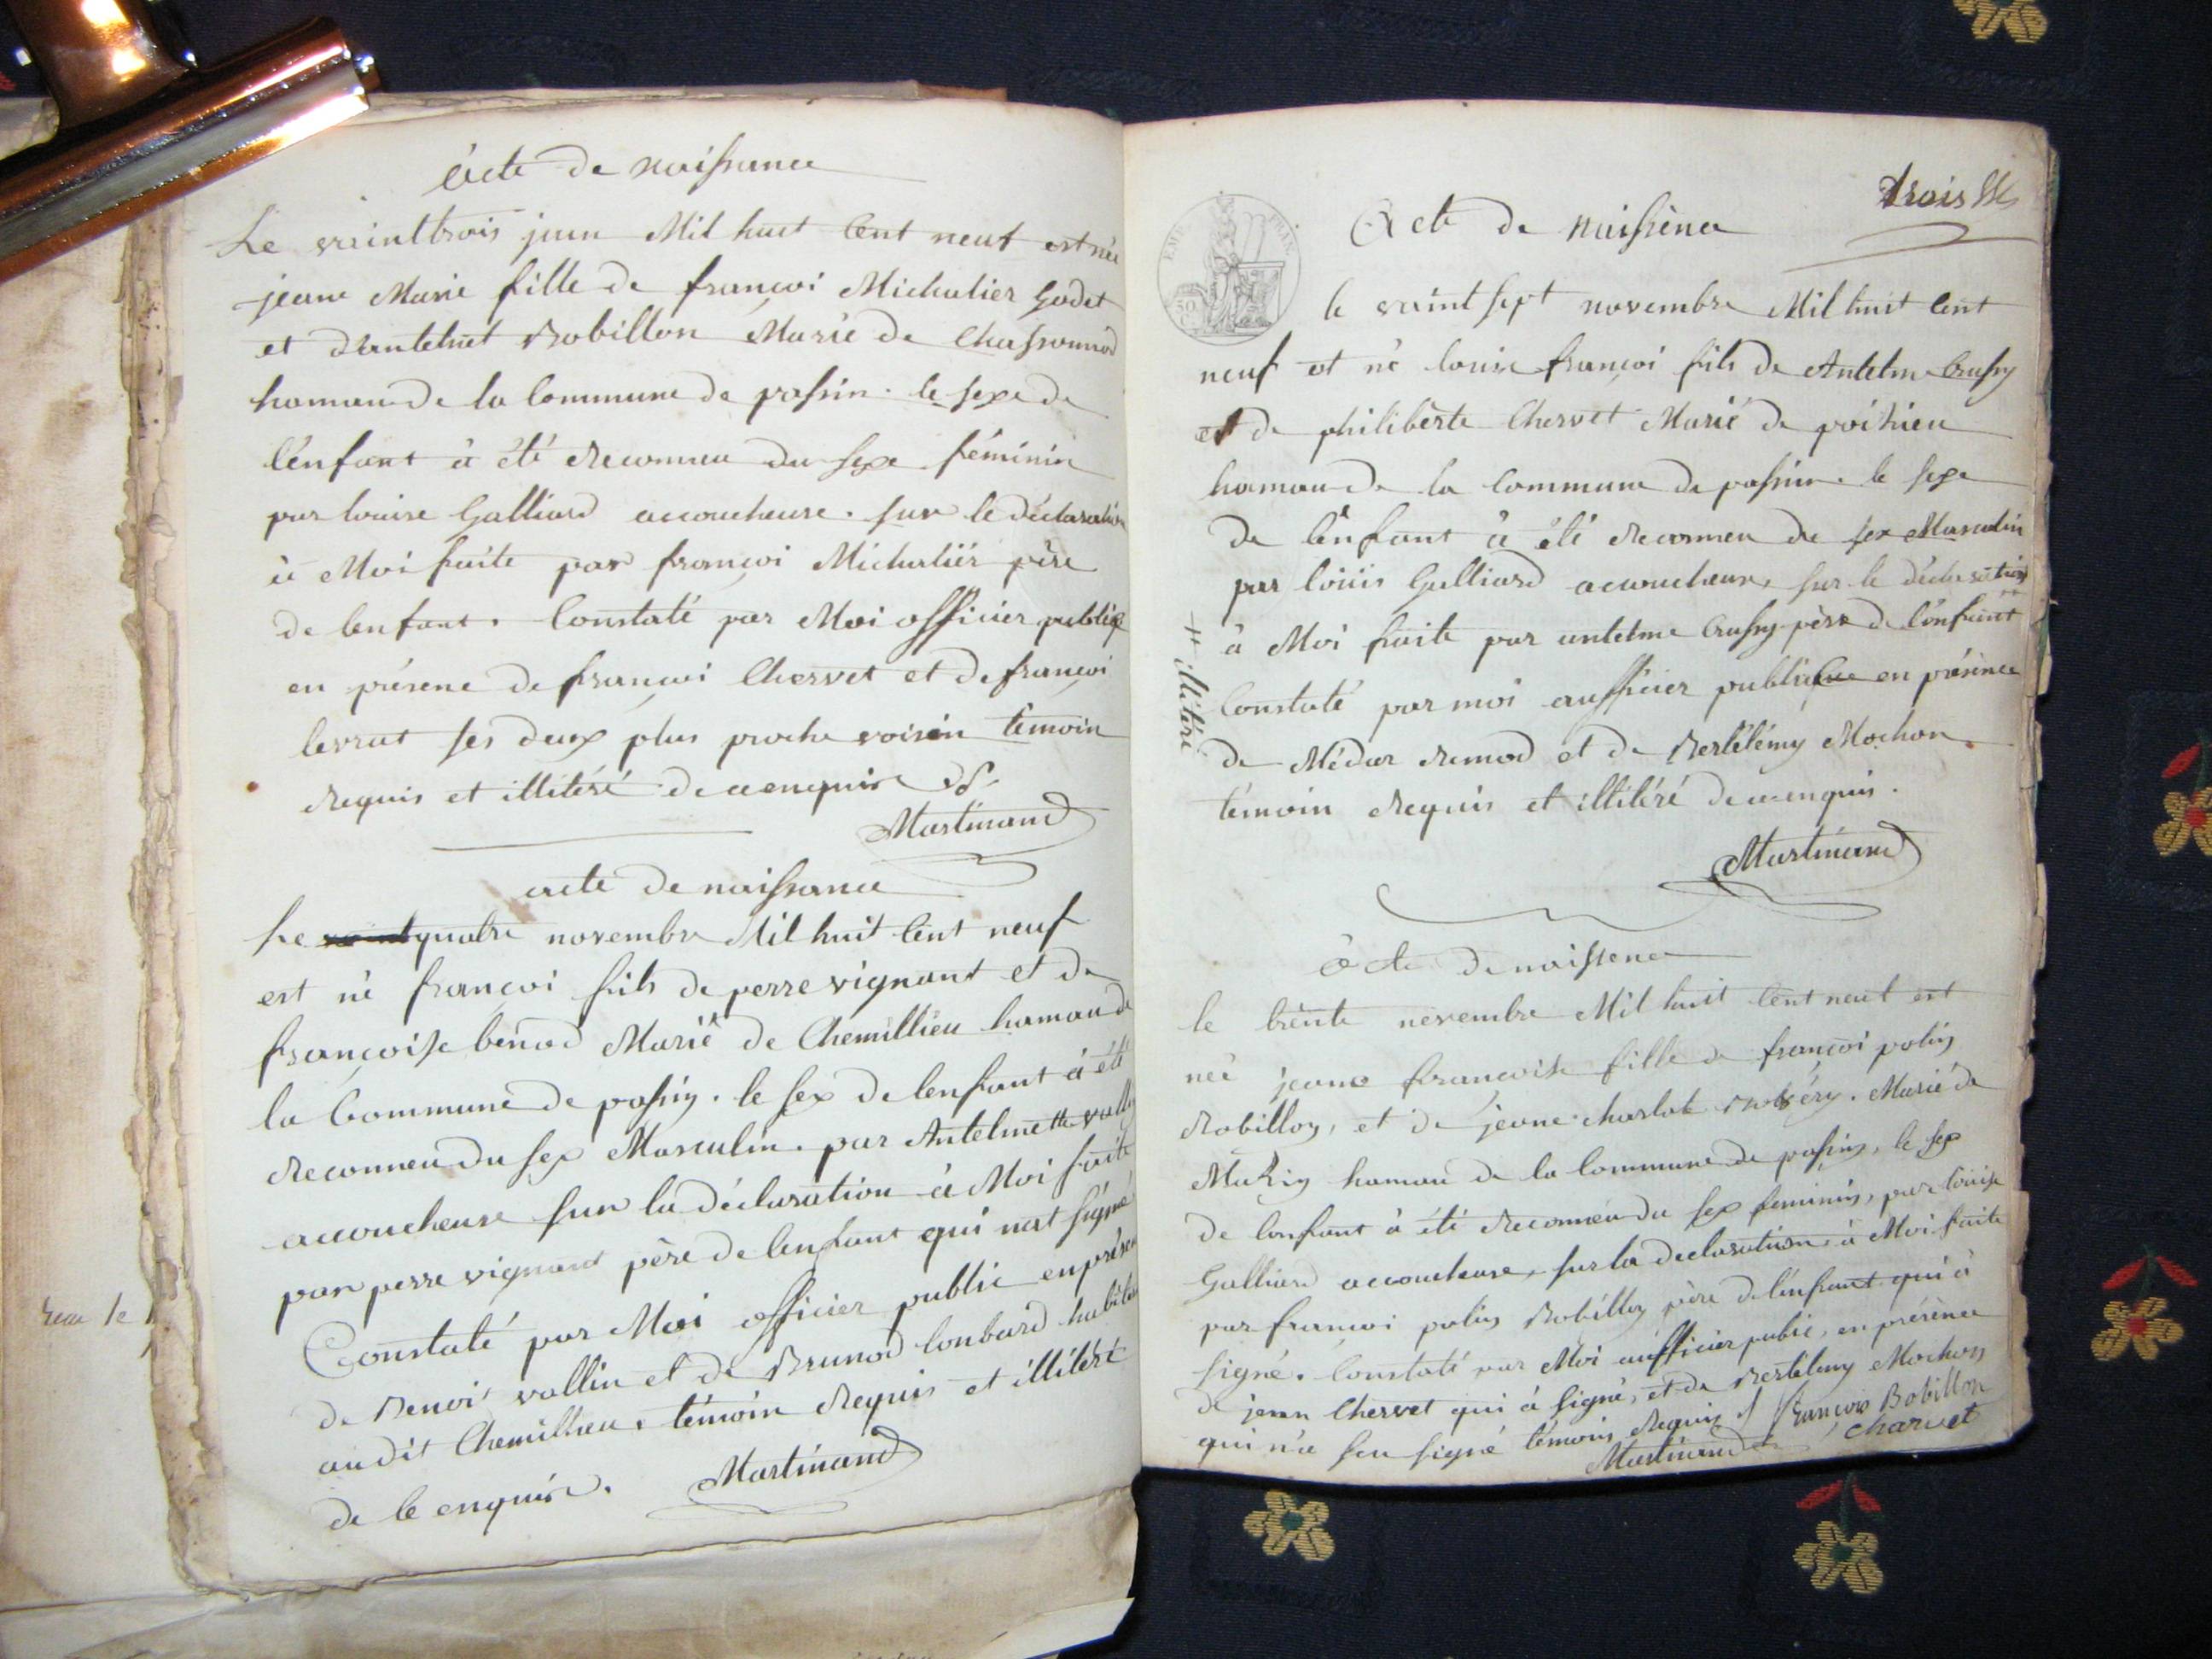 acte de naissance
Le vainttrois juin Mil huit Cent neuf est née
jeane Marie fille de françoi Michalier godet
et dantelmet Robillon Marié de Chassonnod
hamau de la Commune de passin. le sexe de
lénfant à été Reconneu du sexe féminin
par louise Galliard accoucheuse. sur le déclaration
à Moi faite par françoi Michaliér père
de lenfant. Constaté par Moi officier publiq
en présene de françoi Chervet et de françoi
levrat ses deux plus proche voisin témoin
Requis et illitéré de ce enquire
Martinand
acte de naissance
Le vaint quatre novembre Mil huit Cent neuf
est né françoi fils de perre vignant et de
françoise bénod Marié de Chemillieu hamau de
la Commune de passin. le sex de lenfant à été
Reconneu du sex Masculin. par Antelmette
accoucheuse sur la déclaration à Moi faite
par perre vignant père de lenfant qui nat signé
Constaté par Moi officier public en présen
de Benoit vallin et de Brunod lonbard habitan
au dit Chemillieu. témoin Requis et illitéré
de ce enquire. Martinand
trois
EMP. FRANC.
50 C
Acte de naissènce
le vaint sept novembre Mil huit Cent
neuf et né louise françoi fils de Antelme Crussy
et de philiberte Chervet Marié de poisieu
hamau de la Commune de passin. le sexe
de lènfant à été Reconneu de sex Masculin
par loüis Galliard acoucheuse, sur le déclaration
à Moi faite par antelme Crussy père de lénfant
Constaté par moi aufficier publique en présènce
de Médar Remod et de Bertélémy Mochon
témoin Requis et illitéré de ce enquis.
illitéré
Martinand
acte de naissence
le trènte novembre Mil huit Cent neuf est
née jeane françoise fille de françoi polin
Robillon, et de jeane charlote Robéry. Marié de
Muzin hamau de la Commune de passin, le sex
de lonfant à été Reconneu du sex feminin, par louise
Galliard accoucheuse, sur la declaration à Moi faite
par françoi polin Robillon père de lénfant qui à
signé. Constaté par Moi aufficier pubic, en présènce
de jean Chervet qui à signé, et de Bertélemy Mochon
qui n'a seu signé témoin Requis François Bobillon
Martinand charvet